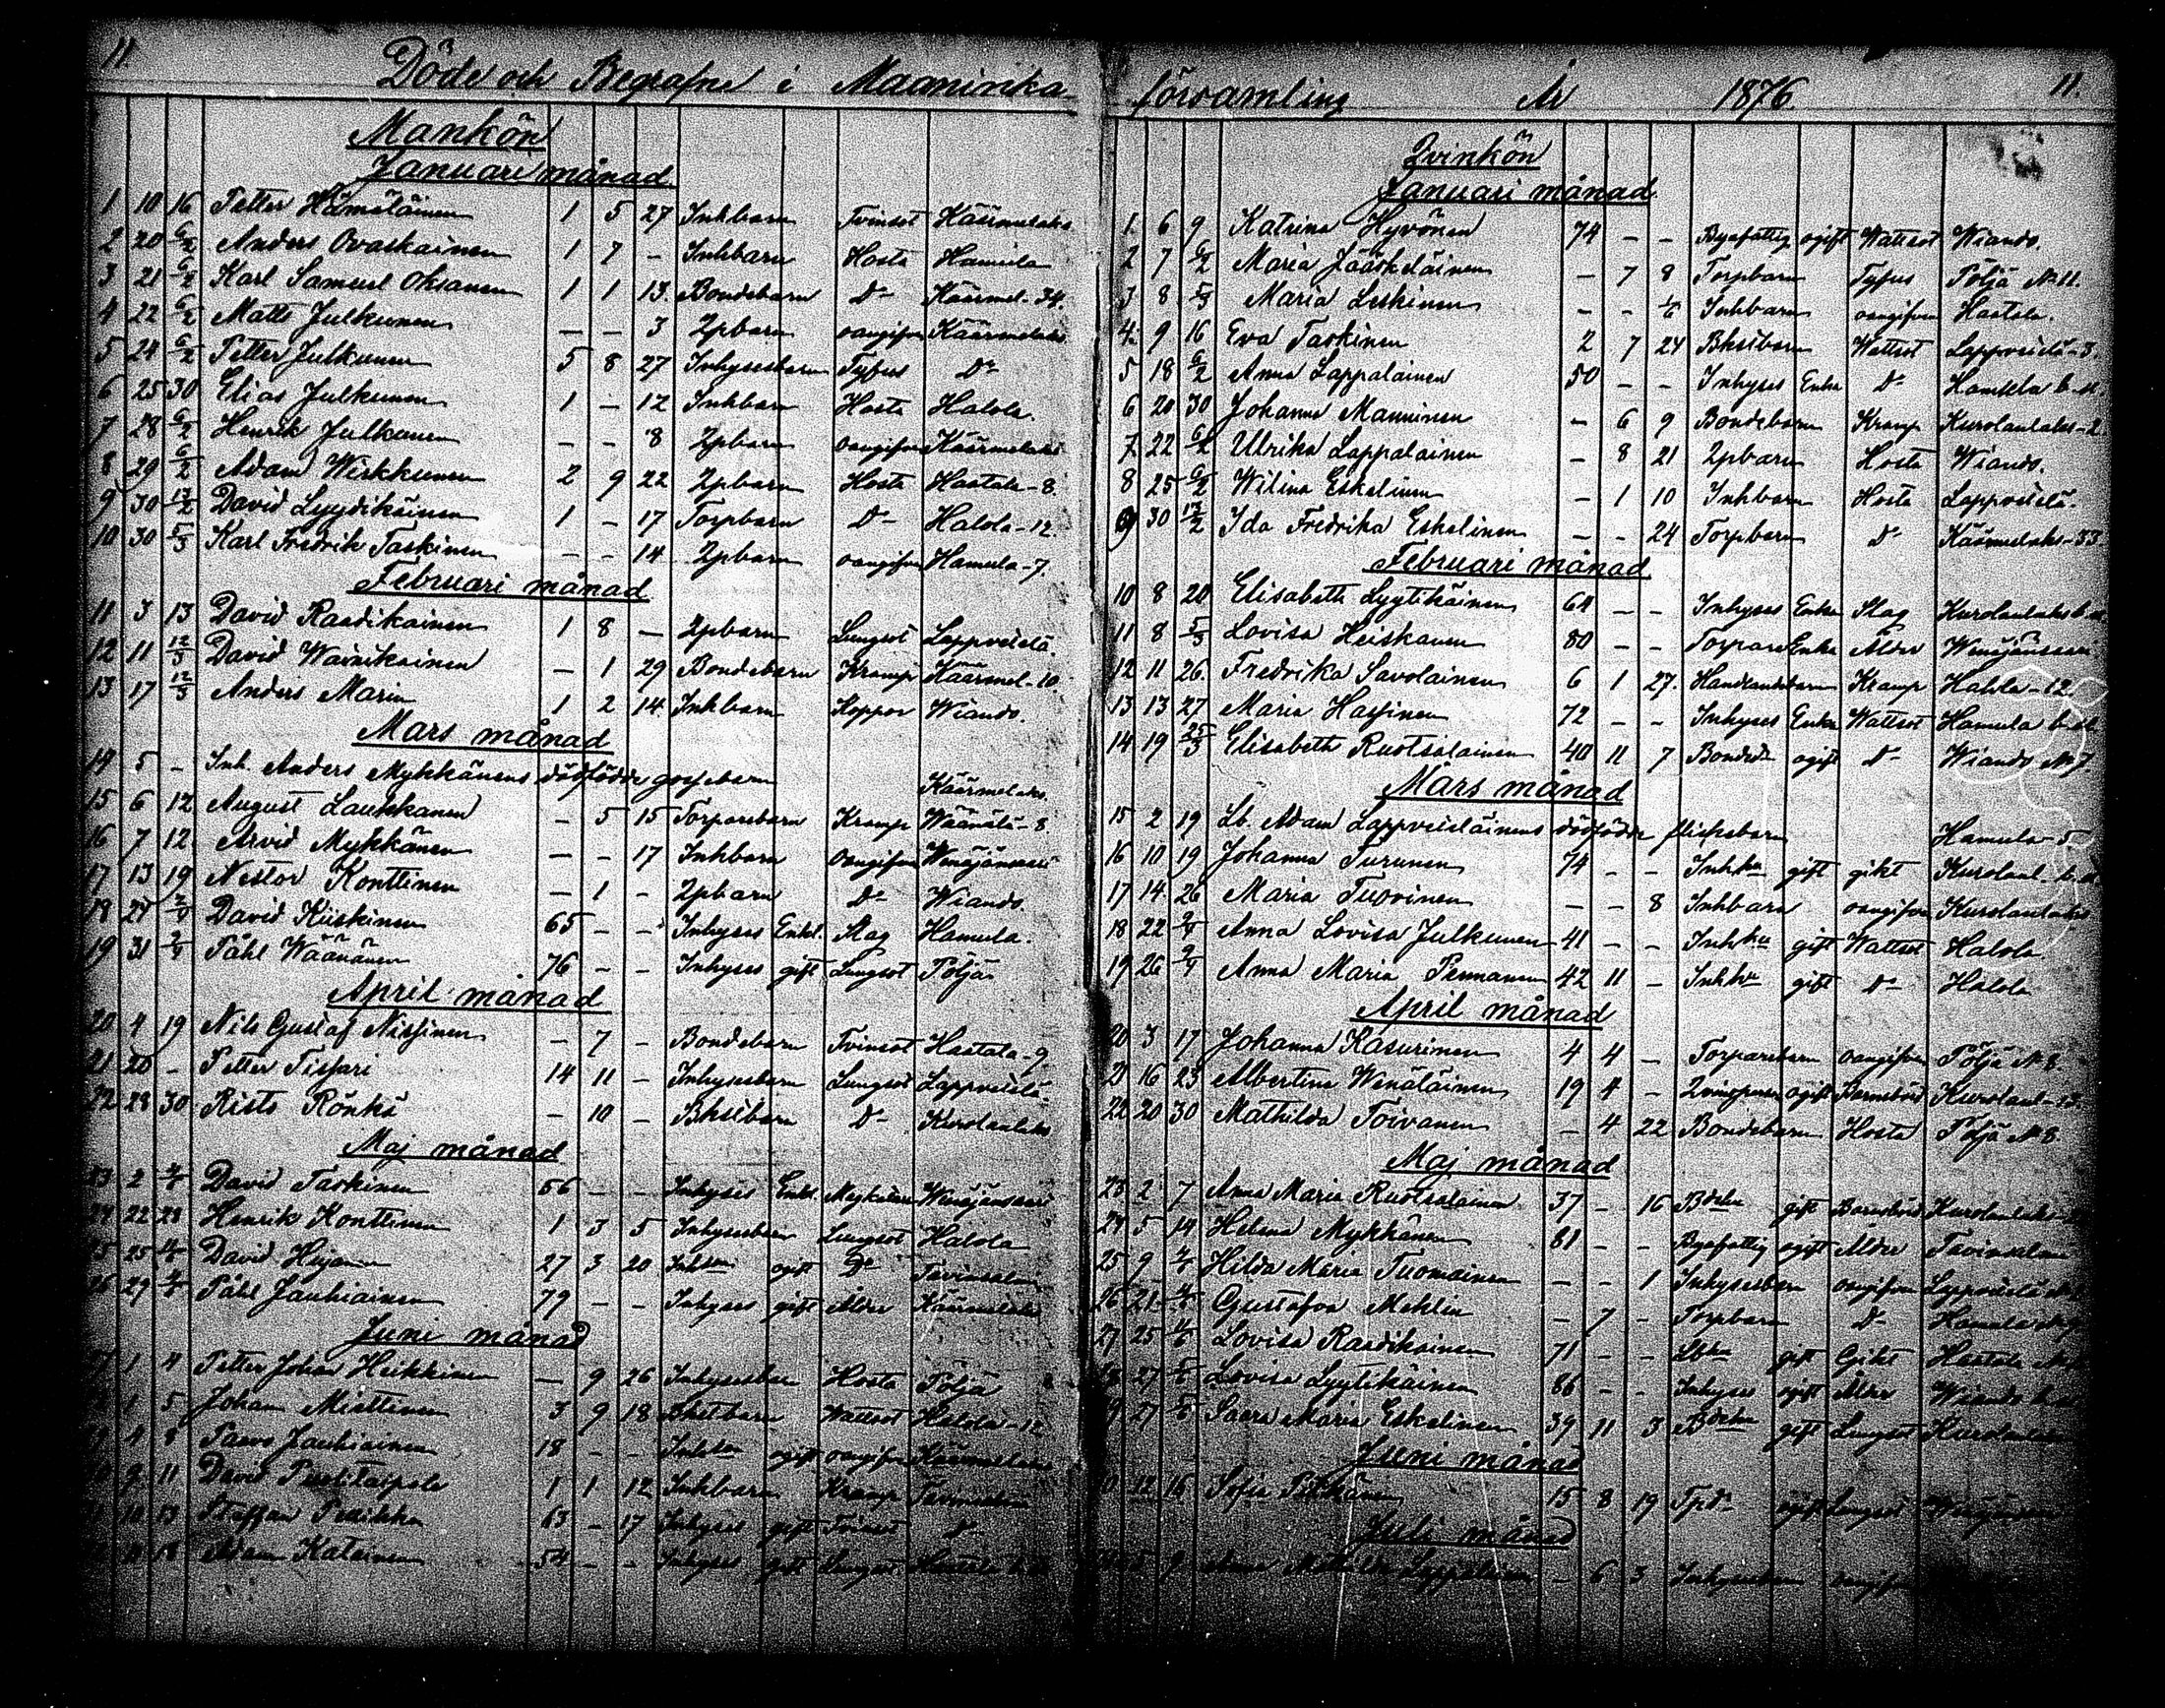 11.
Döde och Begrafne i Maaninka
Mankön
Januari månad
1 10 16 Petter Hämäläinen 1 5 27 Inhbarn Tvinsot Käärmelaks
2 20 6/2 Anders Ovaskainen 1 7 - Inhbarn Hosta Hamula
3 21 6/2 Karl Samuel Oksanen 1 1 13. Bondebarn Do Käärmel-34.
4 22 6/2 Matts Julkunen - - 3 Zpbarn oangifven Käärmelaks
5 24 6/2 Petter Julkunen 5 8 27 Inhysesbarn Tyfus Do
6 25 30 Elias Julkunen 1 - 12 Inhbarn Hosta Halola.
7 28 6/2 Henrik Julkunen - - 8 Zpbarn oangifven Käärmelaks
8 29 6/2 Adam Wirkkunen 2 9 22 Zpbarn Hosta Haatala-8.
9 30 13/2 David Lyydikäinen 1 - 17 Torpbarn Do Halola-12.
10 30 5/3 Karl Fredrik Taskinen - - 14 Zpbarn oangifven Hamula-7.
Februari månad
11 3 13 David Raadikainen 1 8 - Zpbarn Lungsot Lappveislä.
12 11 12/3 David Wainikainen - 1 29 Bondebarn Kramp Käärmel-10.
13 17 12/3 Anders Marin 1 2 14. Inhbarn Koppor Wiando.
Mars månad
14 5 - Inh. Anders Mykkänens dödfödde gossebarn Käärmelaks.
15 6 12 August Laukkanen - 5 15 Torparebarn Kramp Wäänälä-8.
16 7 12 Arvid Mykkänen - - 17 Inhbarn oangifven Wenäjänsaari
17 13 19 Nestor Konttinen - 1 - Zpbarn Do Wiando.
18 27 2/4 David Kiiskinen 65 - - Inhyses Enkl. Slag Hamula.
19 31 2/4 Påhl Wäänänen 76 - - Inhyses gift Lungsot Pöljä
April månad
20 4 19 Nils Gustaf Nissinen - 7 - Bondebarn Tvinsot Haatala-9.
21 20 - Petter Tissari 14 11 - Inhysesbarn Lungsot Lappveislä.
22 28 30 Risto Rönkä - 10 - Bksibarn Do Kurolanlaks
Maj månad
23 2 David Taskinen 56 - - Inhyses Enkl. Wenäjänsaari
24 22 28 Henrik Konttinen 1 3 5 Inhysesbarn Lungsot Halola
25 25 David 27 3 20 ogift Do Tavinsalmi
26 29 Påhl Jauhiainen 79 - - Inhyses gift Ålder Käärmelaks
Juni månad
1 4 Petter Johan Heikkinen - 9 26 Inhysesbarn Hosta Pöljä
1 5 Johan Miettinen 3 9 18 Wattsot Halola-12
4 8 Paavo Jauhiainen 18 - - ogift oangifven Käärmelaks
9 11 David 1 1 12 Inhbarn Kramp Tavinsalmi
10 13 Staffan 63 - 17 Inhyses gift Tvinsot Do
Adam Katainen 54 - - Inhyses gift Lungsot
församling År 1876. 11.
Qvinkön
Januari månad.
1. 6 9 Katrina Hyvönen 74 - - Byafattig ogift Wattsot Wiando.
2 7 6/2 Maria Jääskeläinen - 7 8 Torpbarn Tyfus Pöljä No 11.
3 8 5/3 Maria Leskinen - - Inhbarn oangifven Haatala.
4. 9 16 Eva Taskinen 2 7 24 Bksibarn Wattsot Lappveislä-3.
5 18 6/2 Anna Lappalainen 50 - - Inhyses Enka Do Hamula
6 20 30 Johanna Manninen - 6 9 Bondebarn Kramp Kurolanlaks-2.
7. 22 6/2 Ulrika Lappalainen - 8 21 Zpbarn Hosta Wiando.
8 25 6/2 Wilina Eskelinen - 1 10 Inhbarn Hosta Lappveislä.
9 30 13/2 Ida Fredrika Eskelinen - - 24 Torpbarn Do Käärmelaks-33
Februari månad
10 8 20 Elisabeth Lyytikäinen 64 - - Inhyses Enka Slag Kurolanlaks
11 8 5/3 Lovisa Heiskanen 80 - - Torpare Enka Ålder Wenäjänsaari
12 11 26. Fredrika Savolainen 6 1 27. Kramp Halola-12.
13 13 27 Maria Hassinen 72 - - Inhyses Enka Wattsot Hamula
14 19 25/3 Elisabeth Ruotsalainen 40 11 7 Bonded. ogift Do Wiando No 7.
Mars månad
15 2 19 Lb. Adam Lappveisläinens dödfödde flickebarn Hamula-5
16 10 19 Johanna Turunen 74 - - Inhhu gift gikt Kurolanl.
17 14. 26 Maria Tuovinen - - 8 Inhbarn oangifven Kurolanlaks
18 22 2/4 Anna Lovisa Julkunen 41 - - Inhhu gift Wattsot Halola.
19 26 2/4 Anna Maria Pennanen 42 11 - Inhhu gift Do Halola
April månad
20 3 17 Johanna Kasurinen 4 4 - Torparebarn oangifven Pöljä No 8.
21 16 23 Albertina Wenäläinen 19 4 - Qvinsperson ogift Barnsbörd Kurolanl-13.
22 20 30 Mathilda Toivanen - 4 22 Bondebarn Hosta Pöljä No 8.
Maj månad
23 2 7 Anna Maria Ruotsalainen 37 - 16 gift Barnsbörd Kurolanlaks
24 5 14 Helena Mykkänen 81 - - Byafattig ogift Ålder Tavinsalmi
25 9 Hilda Maria Tuomainen - - 1 Inhysesbarn oangifven Lappveislä
26 21 Gustafva Mehlin - 7 - Torpbarn Do Hamula
27 25 Lovisa Raadikainen 71 - - gift Gikt Haatala
28 27 Lovisa Lyytikäinen 86 - - Inhyses ogift Ålder Wiando
29 27 Saara Maria Eskelinen 39 11 3 gift Lungsot Kurolanlaks
Juni månad
12 16 Sofia Pitkänen 15 8 19 ogift Lungsot Wenäjänsaari
Juli månad
Anna Mathilda - 6 3 Inhysesbarn oangifven